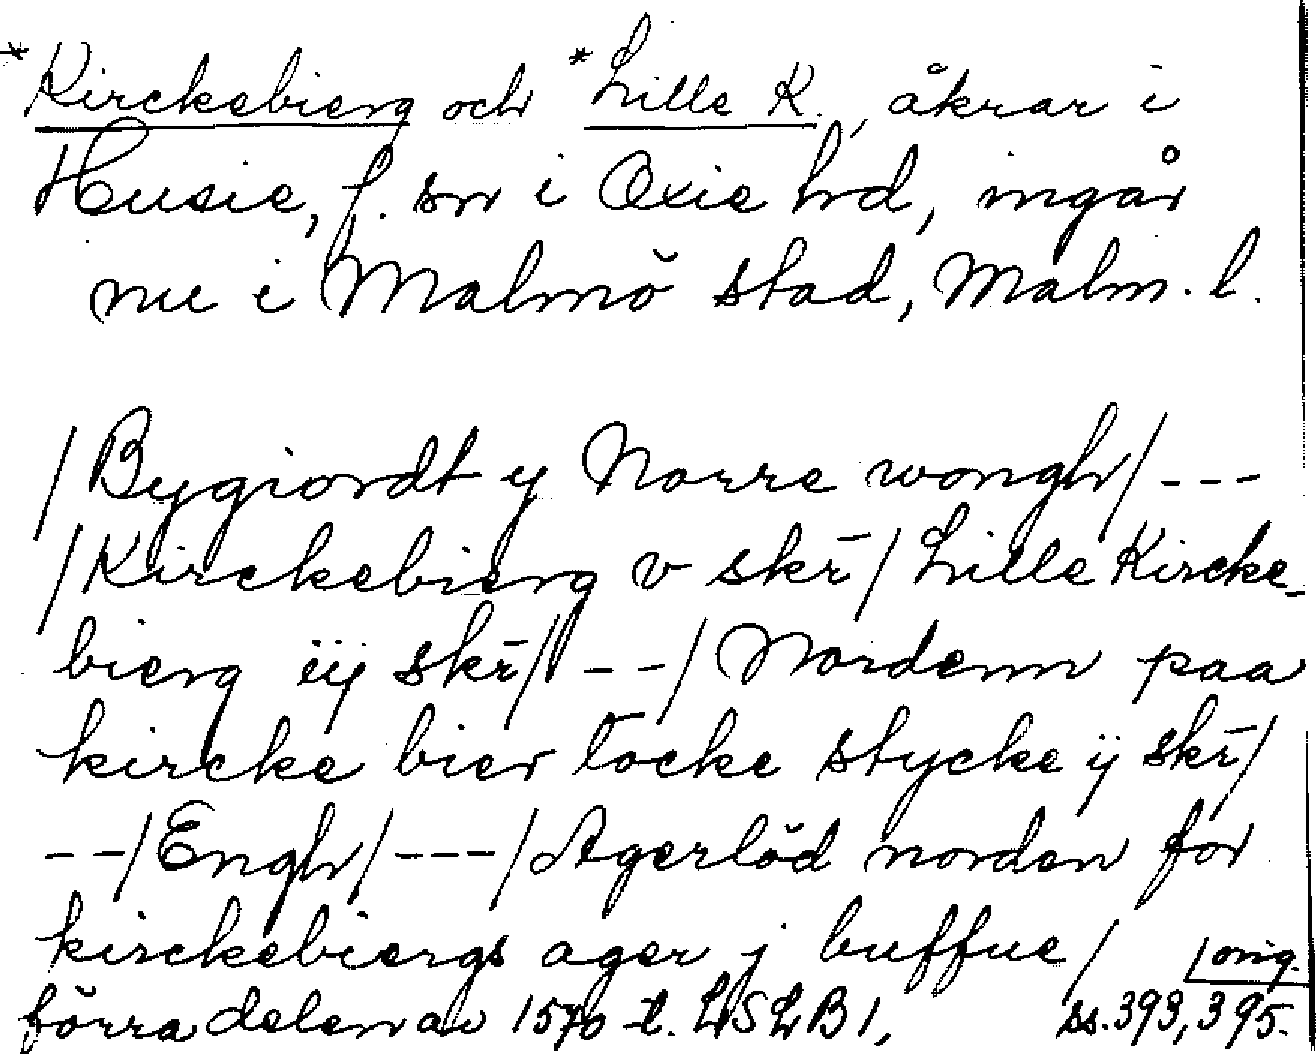 *Kirckebierg och *Lille K., åkrar i
Husie, f. sn i Oxie hd, ingår
nu i Malmö stad, Malm. l.
/Bygiordt y Norre wongh/ ---
/Kirckebierg v skr̄/ Lille Kircke-
bierg iij skr̄/ --/ Nordenn paa
kircke bier locke stycke ij skr̄/
--/Engh/---/Agerlöd norden for
kirckebiergs ager j buffue/
förra delen av 1570-t. LSLB 1, ss. 393, 395.
/orig.